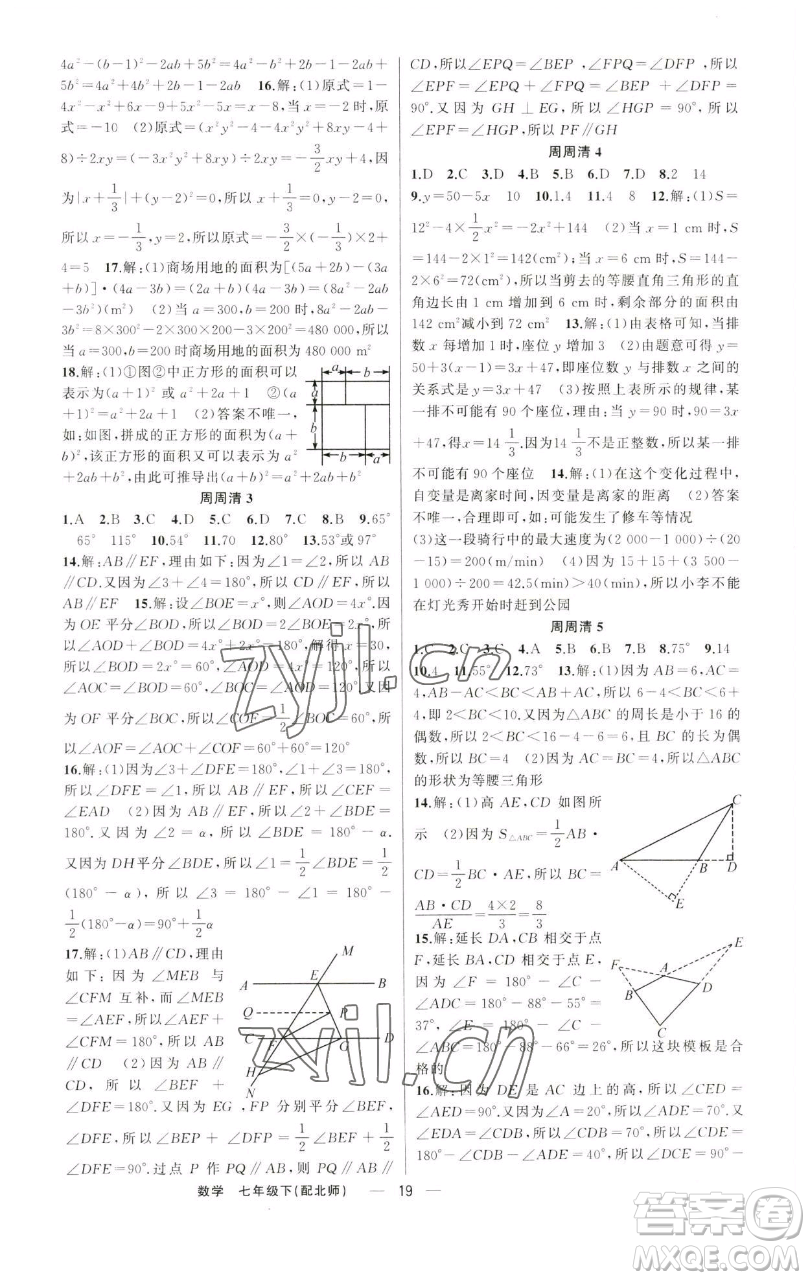 4a²-(b-1)²-2ab+5b²=4a²-b²+2b-1-2ab+
5b²=4a²+4b²+2b-1-2ab　16.解:(1)原式=1-
4x²-x²+6x-9+5x²-5x=x-8,当 x=-2 时,原
式=-10　(2)原式=(x²y²-4x²y²+8xy-4+
8)÷(-2xy)=(-3x²y²+8xy)÷(-2xy)=-
为|x+1/3|+(y-2)²=0,所以 x+1/3=0,y-2=0,
所以 x=-1/3,y=2,所以原式=-3/2×(-1/3)×2+
4=5　17.解:(1)商场用地的面积为[(5a+2b)-(3a
+b)]·(4a-3b)=(2a+b)(4a-3b)=(8a²-2ab
-3b²)(m²)　(2)当 a=300,b=200 时,8a²-2ab
-3b²=8×300²-2×300×200-3×200²=480 000,所以
当 a=300,b=200 时商场用地的面积为 480 000 m²
18.解:(1)①图②中正方形的面积可以
表示为(a+1)² 或 a²+2a+1　②(a
+1)²=a²+2a+1　(2)答案不唯一,
如:如图,拼成的正方形的面积为(a+
b)²,该正方形的面积又可以表示为 a²
+2ab+b²,由此可推导出(a+b)²=a²+2ab+b²
a b
a
b
b a
周周清 3
1.A　2.B　3.C　4.D　5.C　6.D　7.B　8.B　9.65°
65°　115°　10.54°　11.70　12.80°　13.53°或 97°
14.解:AB∥EF,理由如下:因为∠1=∠2,所以 AB∥
CD.又因为∠3+∠4=180°,所以 CD∥EF,所以
AB∥EF　15.解:设∠BOE=x°,则∠AOD=4x°.因
为 OE 平分∠BOD,所以∠BOD=2∠BOE=2x°.因为
∠AOD+∠BOD=4x°+2x°=180°,解得 x=30,所以
∠AOC=∠BOD=2x°=60°,所以∠BOC=
∠AOB-∠AOC=180°-60°=120°.又因
为 OF 平分∠BOC,所以∠COF=1/2∠BOC=60°,所
以∠AOF=∠AOC+∠COF=60°+60°=120°
16.解:(1)因为∠2+∠DFE=180°,∠1+∠2=180°,
所以∠1=∠DFE,所以 AB∥EF,所以∠CEF=
∠EAD　(2)因为 AB∥EF,所以∠2+∠BDE=
180°.又因为∠2=α,所以∠BDE=180°-α.
又因为 DH 平分∠BDE,所以∠1=1/2∠BDE=1/2
(180°-α),所以∠3=180°-
1/2(180°-α)=90°+1/2α
17.解:(1)AB∥CD,理由
如下:因为∠MEB 与
∠CFM 互补,而∠MEB
=∠AEF,所以∠AEF+
∠CFM=180°,所以 AB∥
CD　(2)因为 AB∥CD,
所以∠BEF+
∠DFE=180°.又因为 EG,FP 分别平分∠BEF,
∠DFE,所以∠BEP+∠DFP=1/2∠BEF+1/2
∠DFE=90°.过点 P 作 PQ∥AB,则 PQ∥AB∥
M
A E B
Q P
C F G D
H
N
CD,所以∠EPQ=∠BEP,∠FPQ=∠DFP,所以
∠EPF=∠EPQ+∠FPQ=∠BEP+∠DFP=
90°.又因为 GH⊥EG,所以∠HGP=90°,所以
∠EPF=∠HGP,所以 PF∥GH
周周清 4
1.D　2.C　3.D　4.B　5.B　6.D　7.D　8.2　14
9.y=50-5x　10　10.1.4　11.4　8　12.解:(1)S=
12²-4×1/2x²=-2x²+144　(2)当 x=1 cm 时,S
=144-2×1²=142(cm²);当 x=6 cm 时,S=144-
2×6²=72(cm²).所以当剪去的等腰直角三角形的直
角边长由 1 cm 增加到 6 cm 时,剩余部分的面积由
142 cm²减小到 72 cm²　13.解:(1)由表格可知,当排
数 x 每增加 1 时,座位增加 3　(2)由题意可得,y=
50+3(x-1)=3x+47,即座位数 y 与排数 x 之间的
关系式是 y=3x+47　(3)按照上表所示的规律,某
一排不可能有 90 个座位,理由:当 y=90 时,90=3x
+47,得 x=14 1/3.因为 14 1/3 不是正整数,所以某一排
不可能有 90 个座位　14.解:(1)在这个变化过程中,
自变量是离家时间,因变量是离家的距离　(2)答案
不唯一,合理即可,如:可能发生了修车等情况
(3)这一段骑行中的最大速度为(2 000-1 000)÷(20
-15)=200(m/min)　(4)因为 15+15+(3 500-
1 000)÷200=42.5(min)>40(min),所以小李不能
在灯光秀开始时赶到公园
周周清 5
1.C　2.C　3.C　4.A　5.A　6.B　7.B　8.75°　9.14
10.4　11.55°　12.73°　13.解:(1)因为 AB=6,AC=
4,AB-AC<BC<AB+AC,所以 6-4<BC<6+
4,即 2<BC<10.又因为△ABC 的周长是小于 16 的
偶数,所以 2<BC<16-6-4=6.因为 BC 的长为偶
数,所以 BC=4　(2)因为 AC=BC=4,所以△ABC
的形状为等腰三角形
14.解:(1)高 AE,CD 如图所
示　(2)因为 S△ABC=1/2AB·
CD=1/2BC·AE,所以 BC=
AB·CD/AE=4×2/3=8/3
C
A B D
E
15.解:延长 DA,CB 相交于点
F,延长 BA,CD 相交于点
E.因为∠F=180°-∠C-
∠ADC=180°-88°-55°=
37°,∠E=180°-∠C-
∠ABC=180°-88°-66°=26°,所以这块模板是合
格的
E
F A
B D
C
16.解:因为 DE 是 AC 边上的高,所以∠CED=
∠AED=90°.又因为∠A=20°,所以∠EDA=70°.又
∠EDA=∠CDB,所以∠CDB=70°.又因为
数学　七年级下(配北师)　— 19 —
zyjl.cn
zyjl.cn
答案圈
MXQE.COM